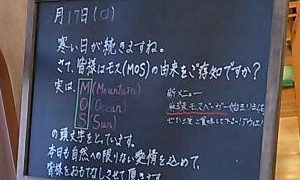 月17日(日)
寒い日が続きますね。
さて、皆様はモス(MOS)の由来をご存知ですか?
実は、M(Mountain)
O(Ocean)
S(Sun)
の頭文字をとっています。
本日も自然への限りない愛情を込めて、
皆様をおもてなしさせて頂きます。
新メニュー